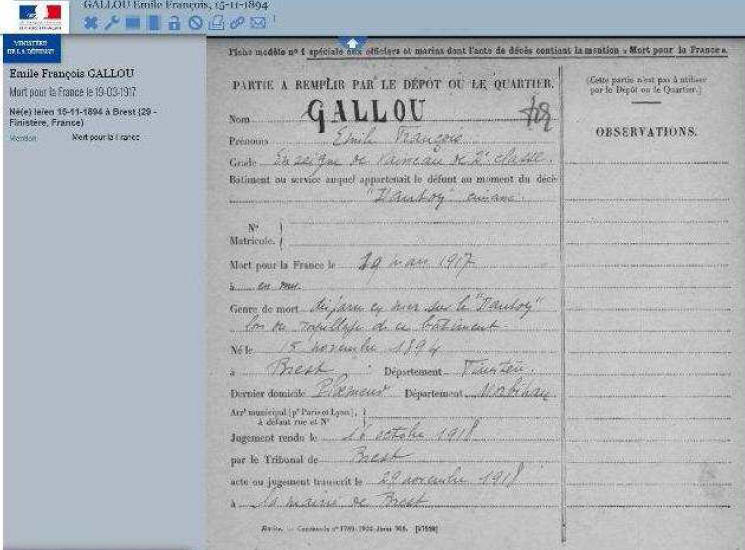 GALLOU Emile François, 15-11-1894
MINISTÈRE
DE LA DÉFENSE
Emile François GALLOU
Mort pour la France le 19-03-1917
Né(e) le/en 15-11-1894 à Brest (29 -
Finistère, France)
Mention Mort pour la France
Fiche modèle nº 1 spéciale aux officiers et marins dont l'acte de décès contient la mention « Mort pour la France ».
PARTIE A REMPLIR PAR LE DÉPOT OU LE QUARTIER.
(Cette partie n'est pas à utiliser
par le Dépôt ou le Quartier.)
OBSERVATIONS.
Nom GALLOU
Prénoms Emile François
Grade Enseigne de Vaisseau de 2e classe.
Bâtiment ou service auquel appartenait le défunt au moment du décès
"Danton"
Nº
Matricule.
Mort pour la France le 19 mars 1917
à en mer
Genre de mort disparu en mer sur le "Danton"
lors du torpillage de ce bâtiment.
Né le 15 novembre 1894
à Brest Département Finistère.
Dernier domicile Ploemeur Département Morbihan
Arrt municipal (pr Paris et Lyon),
à défaut rue et Nº
Jugement rendu le 16 octobre 1918
par le Tribunal de Brest
acte ou jugement transcrit le 29 novembre 1918
à la mairie de Brest